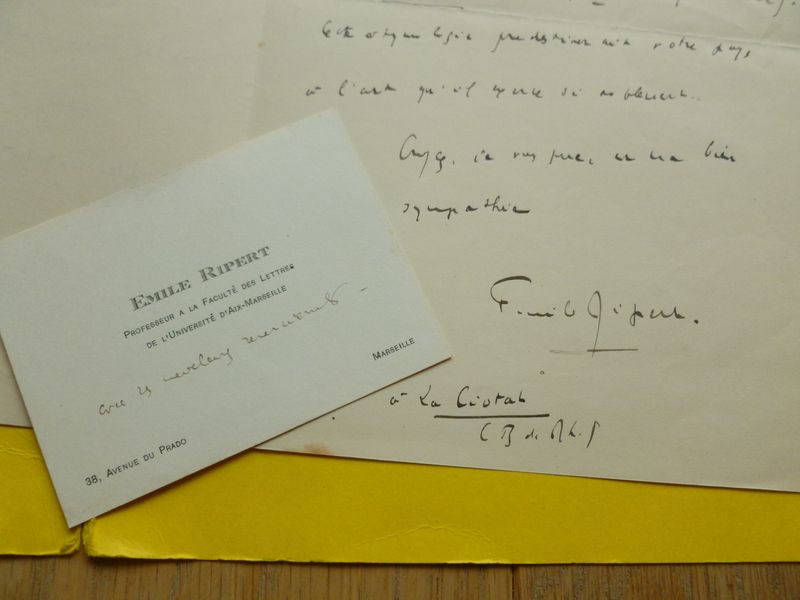 Cette étymologie prédestinait votre pays
à l'art qu'il exerce si noblement.
Croyez, je vous prie, en ma bien
sympathie
Emile Ripert.
à La Ciotat
(B. du Rh.)
EMILE RIPERT
PROFESSEUR A LA FACULTÉ DES LETTRES
DE L'UNIVERSITÉ D'AIX-MARSEILLE
avec ses meilleurs remerciements
MARSEILLE
38, AVENUE DU PRADO